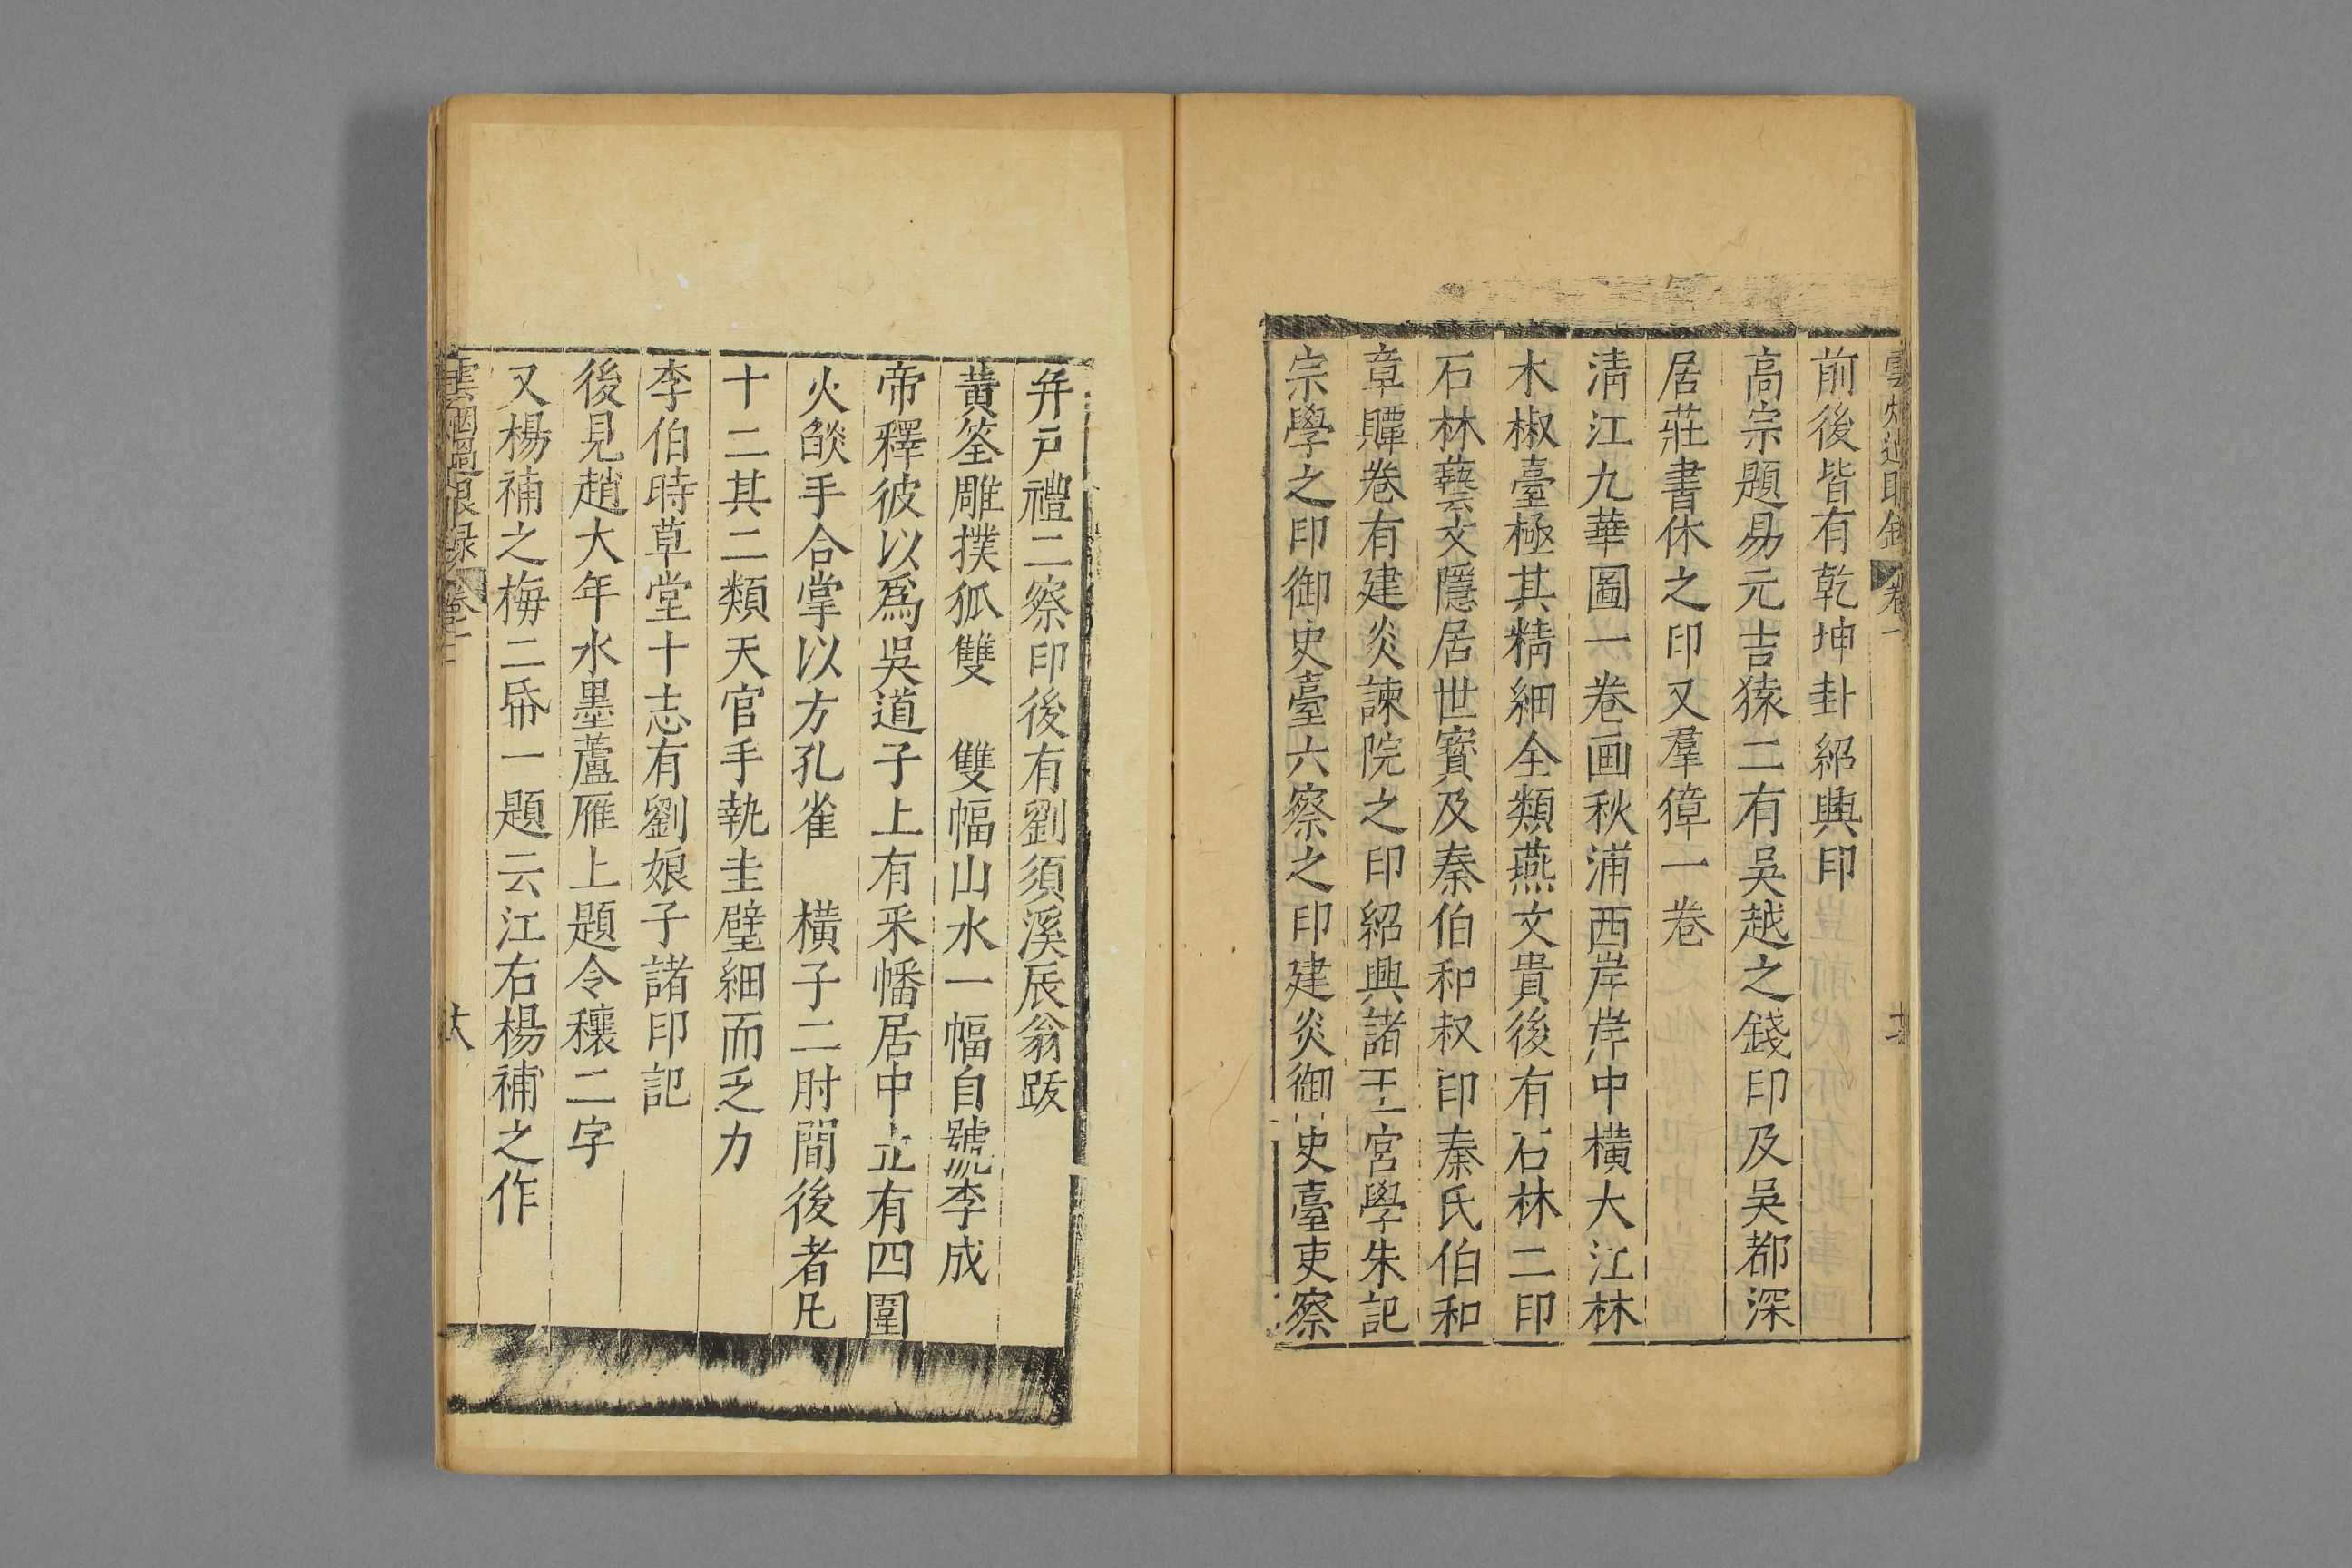 前後皆有乾坤卦紹興印
高宗題易元吉猿二有吳越之錢印及吳都深
居莊書休之印又羣獐一卷
清江九華圖一卷画秋浦西岸岸中橫大江林
木椒臺極其精細全類燕文貴後有石林二印
石林藝文隱居世寶及秦伯和叔印秦氏伯和
章贉卷有建炎諫院之印紹興諸王宮學朱記
宗學之印御史臺六察之印建炎御史臺吏察
并戶禮二察印後有劉須溪辰翁跋
黃筌雕撲狐雙　雙幅山水一幅自號李成
帝釋彼以爲吳道子上有釆幡居中立有四圍
火燄手合掌以方孔雀　橫子二肘間後者凡
十二其二類天官手執圭璧細而乏力
李伯時草堂十志有劉娘子諸印記
後見趙大年水墨蘆雁上題令穰二字
又楊補之梅二帋一題云江右楊補之作
雲烟過眼録 卷二